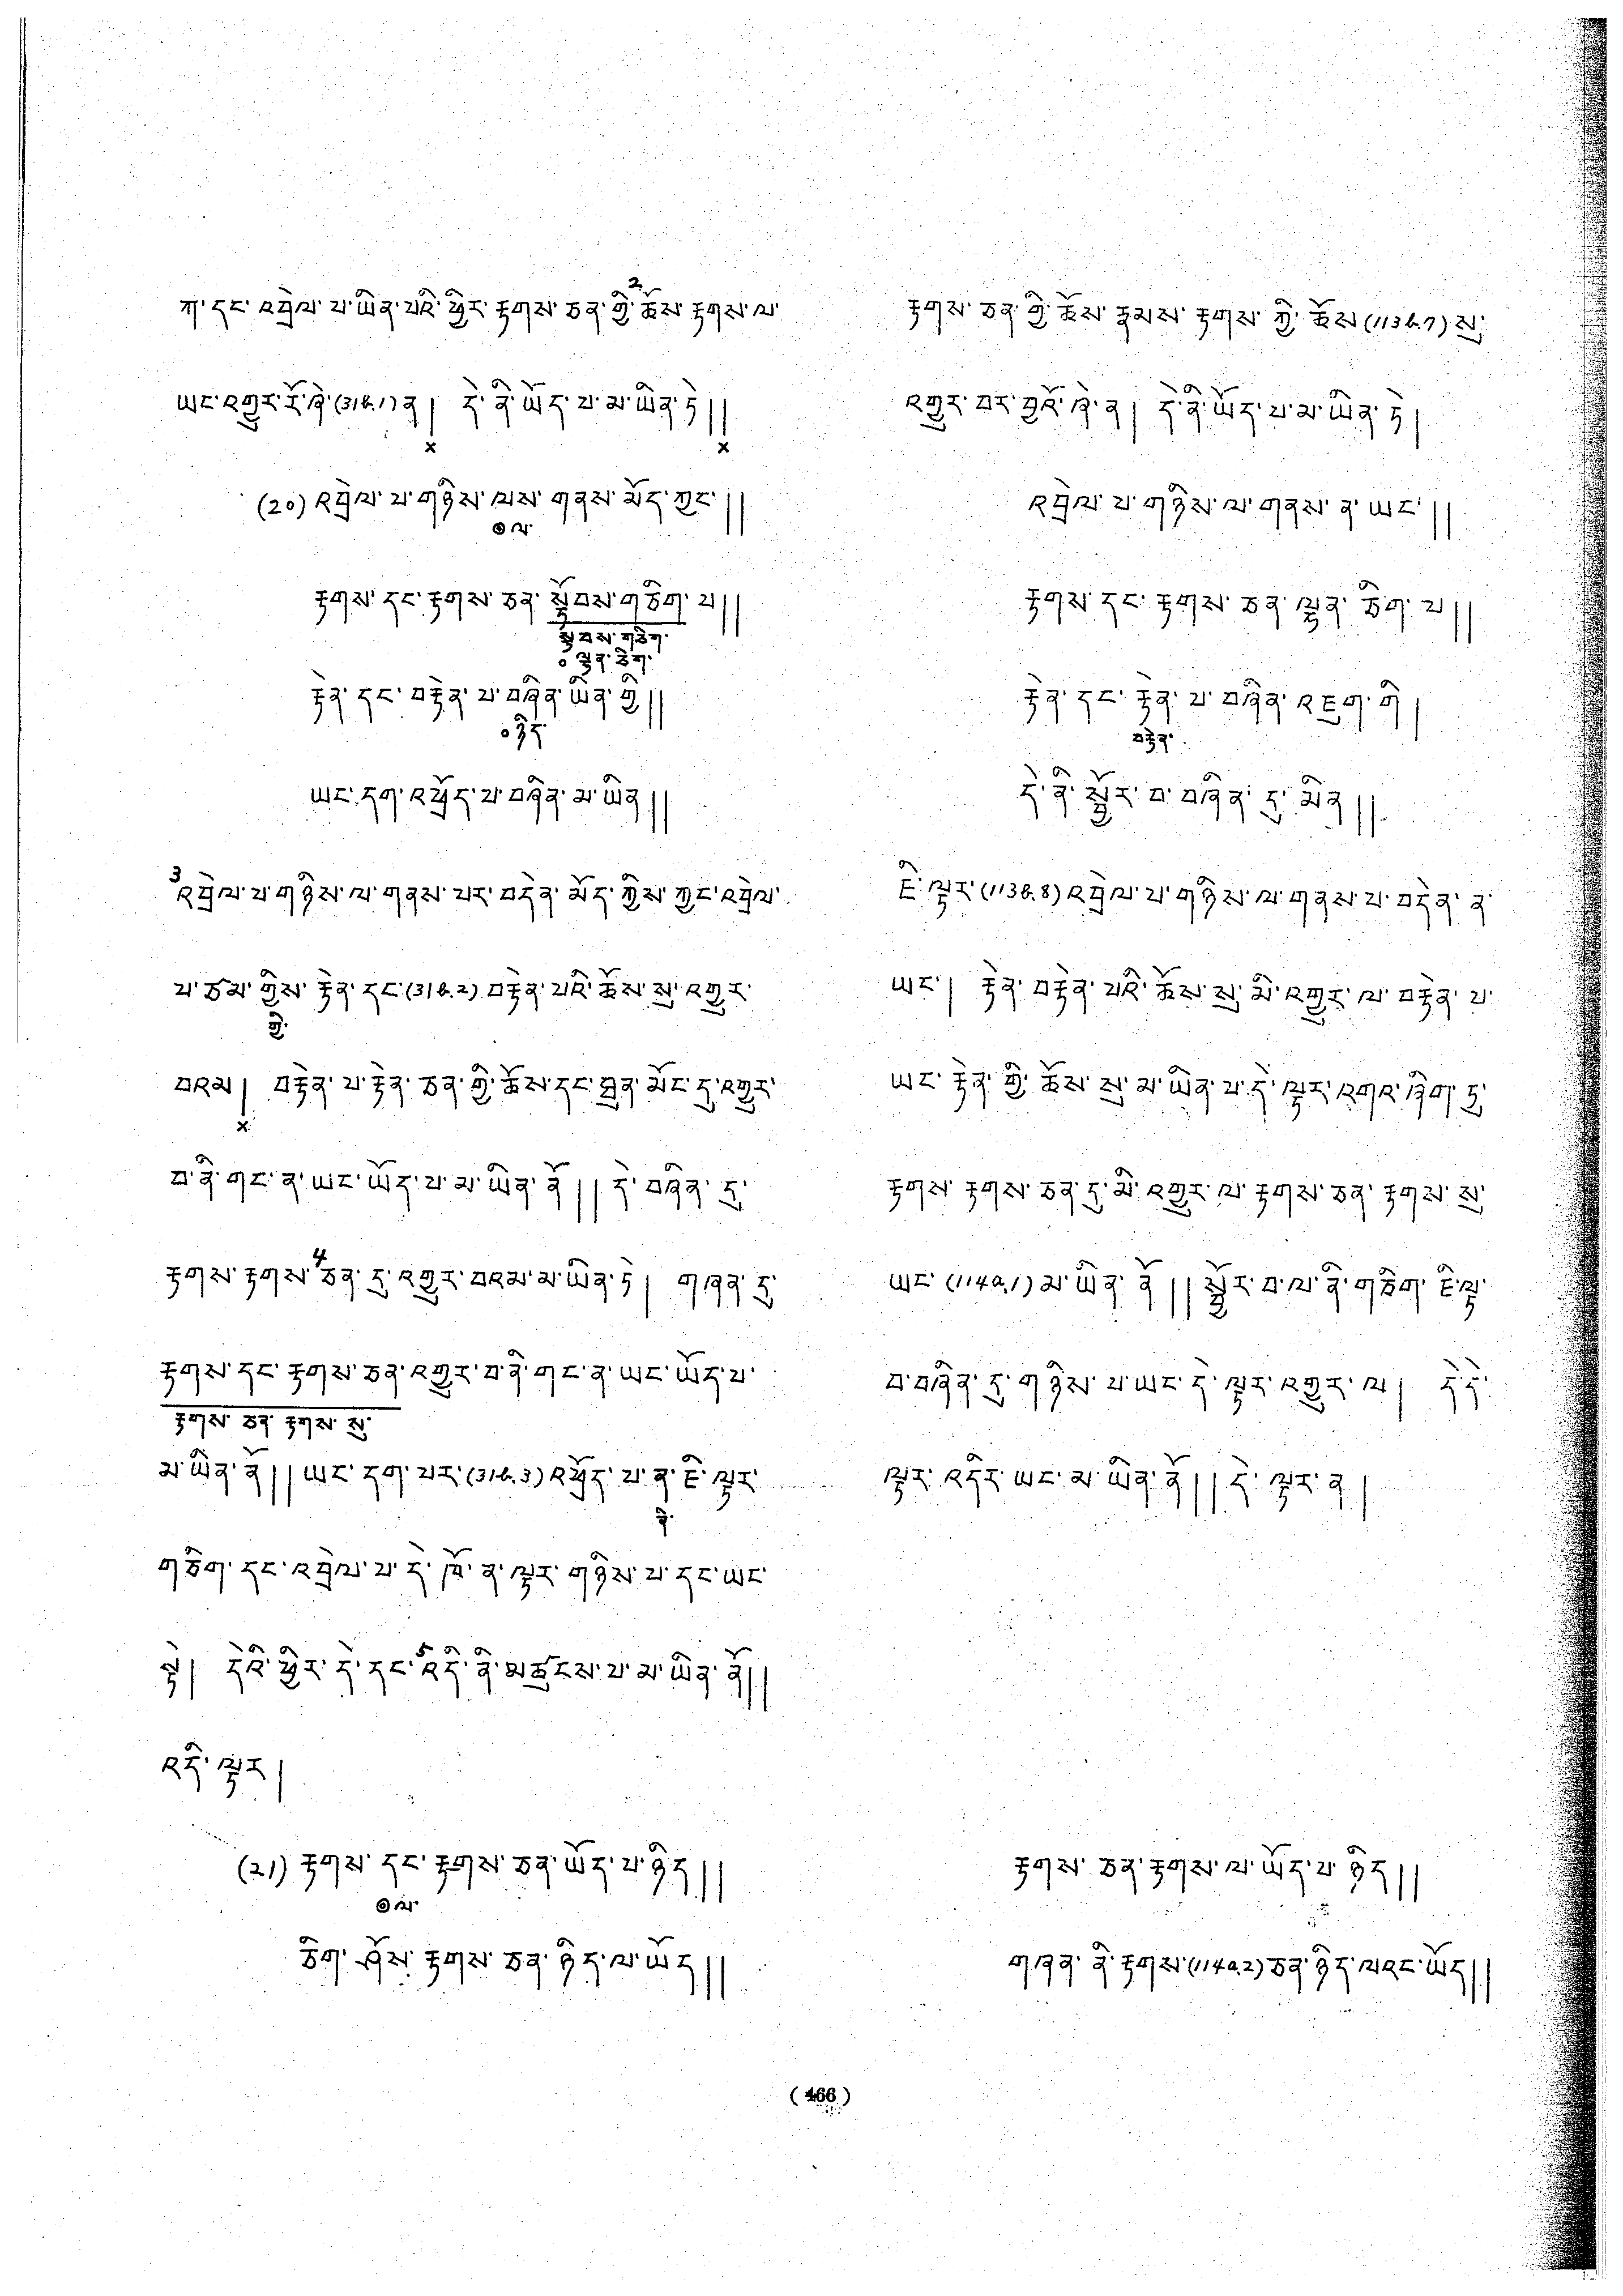 ཀ་དང་འབྲེལ་པ་ཡིན་པའི་ཕྱིར་རྟགས་ཅན་གྱི་2ཆོས་རྟགས་ལ་
ཡང་འགྱུར་རོ་ཞེ་(31b.1)ན། དེ་ནི་ཡོད་པ་མ་ཡིན་ཏེ།།
x x
(20) འབྲེལ་པ་གཉིས་ལས་གནས་མོད་ཀྱང་།།
◎ལ་
རྟགས་དང་རྟགས་ཅན་སྟོབས་གཅིག་པ།།
སྟབས་གཅིག་
○ལྷན་ཅིག་
རྟེན་དང་བརྟེན་པ་བཞིན་ཡིན་གྱི།།
○ཉིད་
ཡང་དག་འཕྲོད་པ་བཞིན་མ་ཡིན།།
3འབྲེལ་པ་གཉིས་ལ་གནས་པར་བདེན་མོད་ཀྱིས་ཀྱང་འབྲེལ་
པ་ཙམ་གྱིས་རྟེན་དང་(31b.2)བརྟེན་པའི་ཆོས་སུ་འགྱུར་
གྱི་
བའམ། བརྟེན་པ་རྟེན་ཅན་གྱི་ཆོས་དང་ཐུན་མོང་དུ་འགྱུར་
x
བ་ནི་གང་ན་ཡང་ཡོད་པ་མ་ཡིན་ནོ།། དེ་བཞིན་དུ་
རྟགས་རྟགས་4ཅན་དུ་འགྱུར་བའམ་མ་ཡིན་ཏེ། གཞན་དུ་
རྟགས་དང་རྟགས་ཅན་འགྱུར་བ་ནི་གང་ན་ཡང་ཡོད་པ་
རྟགས་ཅན་རྟགས་སུ་
མ་ཡིན་ནོ།། ཡང་དག་པར་(31b.3)འཕྲོད་པ་ན་ཇི་ལྟར་
ནི་
གཅིག་དང་འབྲེལ་པ་དེ་ཁོ་ན་ལྟར་གཉིས་པ་དང་ཡང་
སྟེ། དེའི་ཕྱིར་དེ་དང་5འདི་ནི་མཚུངས་པ་མ་ཡིན་ནོ།།
འདི་ལྟར།
(21) རྟགས་དང་རྟགས་ཅན་ཡོད་པ་ཉིད།།
◎ལ་
ཅིག་ཤོས་རྟགས་ཅན་ཉིད་ལ་ཡོད།།
རྟགས་ཅན་གྱི་ཆོས་རྣམས་རྟགས་ཀྱི་ཆོས(113b.7)སུ་
འགྱུར་བར་བྱའོ་ཞེ་ན། དེ་ནི་ཡོད་པ་མ་ཡིན་ཏེ།
འབྲེལ་པ་གཉིས་ལ་གནས་ན་ཡང་།།
རྟགས་དང་རྟགས་ཅན་ལྷན་ཅིག་པ།།
རྟེན་དང་རྟེན་པ་བཞིན་འཇུག་གི།
བརྟེན་
དེ་ནི་སྦྱོར་བ་བཞིན་དུ་མིན།།
ཇི་ལྟར་(113b.8)འབྲེལ་པ་གཉིས་ལ་གནས་པ་བདེན་ན་
ཡང་། རྟེན་བརྟེན་པའི་ཆོས་སུ་མི་འགྱུར་ལ་བརྟེན་པ་
ཡང་རྟེན་གྱི་ཆོས་སུ་མ་ཡིན་པ་དེ་ལྟར་འགའ་ཞིག་ཏུ་
རྟགས་རྟགས་ཅན་དུ་མི་འགྱུར་ལ་རྟགས་ཅན་རྟགས་སུ་
ཡང་(114a.1)མ་ཡིན་ནོ།། སྦྱོར་བ་ལ་ནི་གཅིག་ཇི་ལྟ་
བ་བཞིན་དུ་གཉིས་པ་ཡང་དེ་ལྟར་འགྱུར་ལ། དེ་དེ་
ལྟར་འདིར་ཡང་མ་ཡིན་ནོ།། དེ་ལྟར་ན།
རྟགས་ཅན་རྟགས་ལ་ཡོད་པ་ཉིད།།
གཞན་ནི་རྟགས་(114a.2)ཅན་ཉིད་ལའང་ཡོད།།
(466)